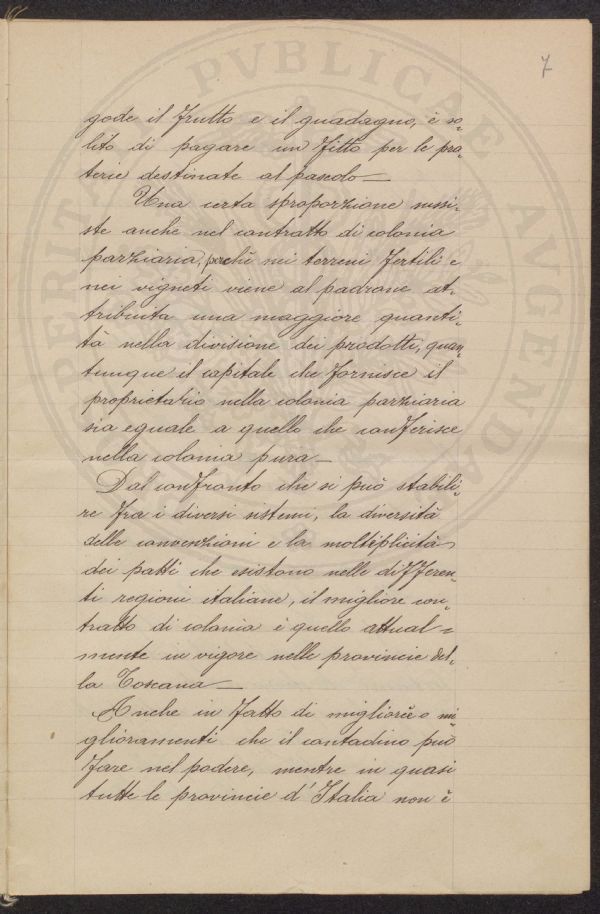 7
gode il frutto e il guadagno, è so-
lito di pagare un fitto per le pra-
terie destinate al pascolo—
Una certa sproporzione sussi-
ste anche nel contratto di colonia
parziaria, perchè nei terreni fertili e
nei vigneti viene al padrone at-
tribuita una maggiore quanti-
tà nella divisione dei prodotti, quan-
tunque il capitale che fornisce il
proprietario nella colonia parziaria
sia eguale a quello che conferisce
nella colonia pura—
Dal confronto che si può stabili-
re fra i diversi sistemi, la diversità
delle convenzioni e la moltiplicità
dei patti che esistono nelle differen-
ti regioni italiane, il migliore con-
tratto di colonia è quello attual=
mente in vigore nelle provincie del-
la Toscana—
Anche in fatto di migliorie o mi-
glioramenti che il contadino può
fare nel podere, mentre in quasi
tutte le provincie d'Italia non è
PERITIA PVBLICAE AVGENDA